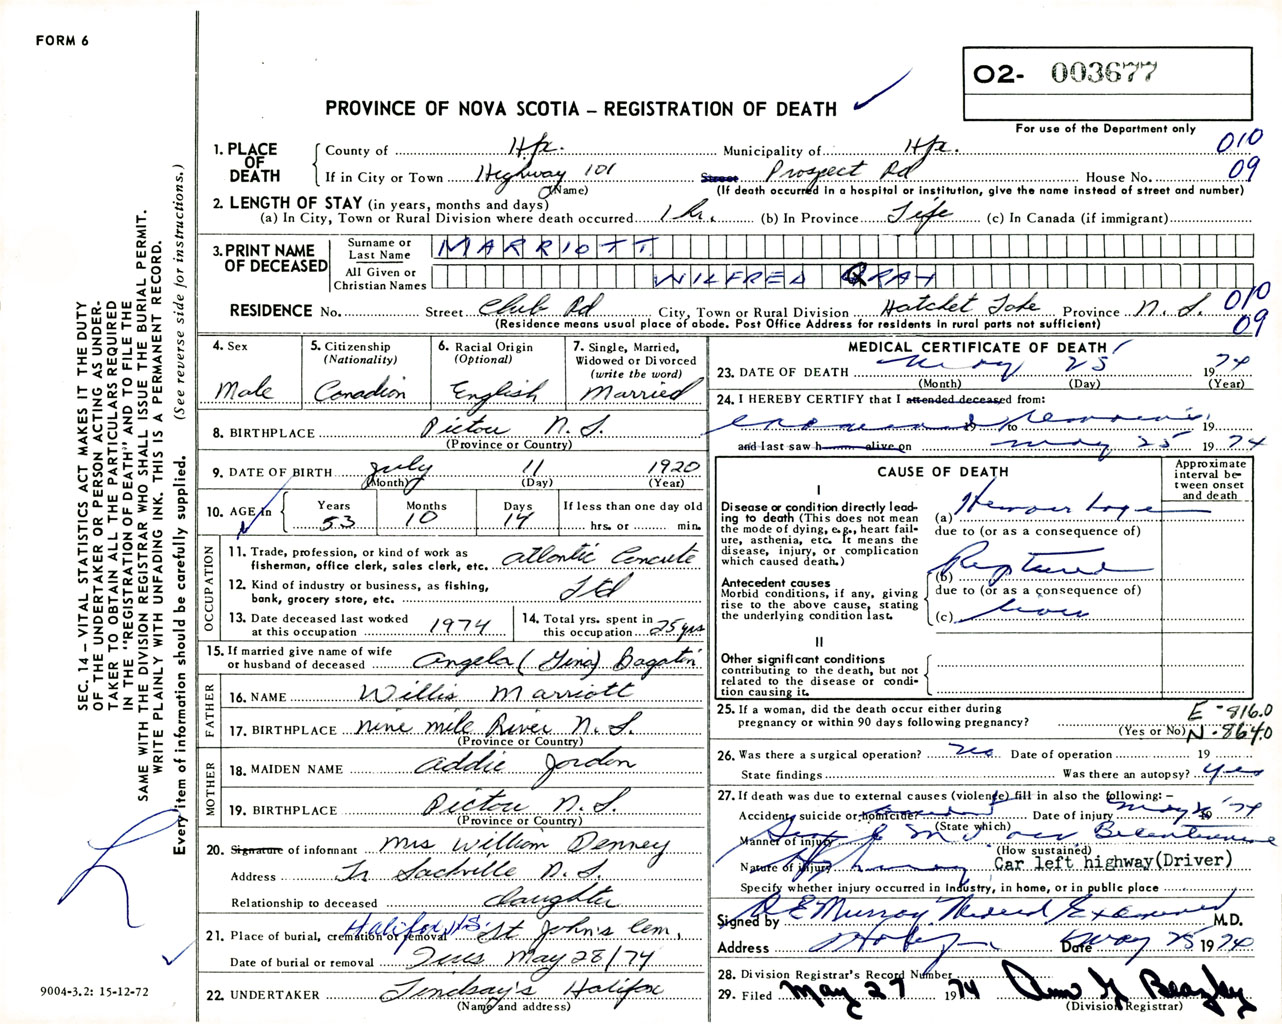 FORM 6
02- 003677
PROVINCE OF NOVA SCOTIA – REGISTRATION OF DEATH
For use of the Department only
010
09
1. PLACE OF DEATH
County of Hfx. Municipality of Hfx.
If in City or Town Highway 101 Street Prospect Rd House No.
(Name) (If death occurred in a hospital or institution, give the name instead of street and number)
2. LENGTH OF STAY (in years, months and days)
(a) In City, Town or Rural Division where death occurred 1 hr. (b) In Province Life (c) In Canada (if immigrant)
3. PRINT NAME OF DECEASED
Surname or Last Name MARRIOTT
All Given or Christian Names WILFRED GRAY
RESIDENCE No. Street Club Rd City, Town or Rural Division Hatchet Lake Province N.S.
010
09
(Residence means usual place of abode. Post Office Address for residents in rural parts not sufficient)
4. Sex
Male
5. Citizenship (Nationality)
Canadian
6. Racial Origin (Optional)
English
7. Single, Married, Widowed or Divorced (write the word)
Married
8. BIRTHPLACE Pictou N.S.
(Province or Country)
9. DATE OF BIRTH July 11 1920
(Month) (Day) (Year)
10. AGE in
Years 53
Months 10
Days 14
If less than one day old
hrs. or min.
OCCUPATION
11. Trade, profession, or kind of work as fisherman, office clerk, sales clerk, etc. Atlantic Concrete
12. Kind of industry or business, as fishing, bank, grocery store, etc. Ltd
13. Date deceased last worked at this occupation 1974
14. Total yrs. spent in this occupation 25 yrs
15. If married give name of wife or husband of deceased Angela (Gina) Bagaton
FATHER
16. NAME Willis Marriott
17. BIRTHPLACE Nine Mile River N.S.
(Province or Country)
MOTHER
18. MAIDEN NAME Addie Jordon
19. BIRTHPLACE Pictou N.S.
(Province or Country)
20. Signature of informant Mrs William Denney
Address Lr Sackville N.S.
Relationship to deceased daughter
21. Place of burial, cremation or removal Halifax N.S. St John's Cem.
Date of burial or removal Tues May 28/74
22. UNDERTAKER Lindsay's Halifax
(Name and address)
MEDICAL CERTIFICATE OF DEATH
23. DATE OF DEATH May 25 1974
(Month) (Day) (Year)
24. I HEREBY CERTIFY that I attended deceased from:
19 to 19
and last saw h alive on May 25 1974
CAUSE OF DEATH
Approximate interval between onset and death
I
Disease or condition directly leading to death (This does not mean the mode of dying, e.g., heart failure, asthenia, etc. It means the disease, injury, or complication which caused death.)
(a) Hemorrhage
due to (or as a consequence of)
Antecedent causes
Morbid conditions, if any, giving rise to the above cause, stating the underlying condition last.
(b) Ruptured
due to (or as a consequence of)
(c)
II
Other significant conditions contributing to the death, but not related to the disease or condition causing it.
25. If a woman, did the death occur either during pregnancy or within 90 days following pregnancy?
(Yes or No)
E-816.0
N-864.0
26. Was there a surgical operation? no Date of operation 19
State findings Was there an autopsy? yes
27. If death was due to external causes (violence) fill in also the following:–
Accident, suicide or homicide? Date of injury 19 74
(State which)
Manner of injury
(How sustained)
Nature of injury Car left highway (Driver)
Specify whether injury occurred in industry, in home, or in public place
Signed by Murray Medical Examiner M.D.
Address Date May 25 1974
28. Division Registrar's Record Number
29. Filed May 27 1974
(Division Registrar)
SEC. 14 – VITAL STATISTICS ACT MAKES IT THE DUTY
OF THE UNDERTAKER OR PERSON ACTING AS UNDER-
TAKER TO OBTAIN ALL THE PARTICULARS REQUIRED
IN THE "REGISTRATION OF DEATH" AND TO FILE THE
SAME WITH THE DIVISION REGISTRAR WHO SHALL ISSUE THE BURIAL PERMIT.
WRITE PLAINLY WITH UNFADING INK. THIS IS A PERMANENT RECORD.
Every item of information should be carefully supplied. (See reverse side for instructions.)
9004-3.2: 15-12-72